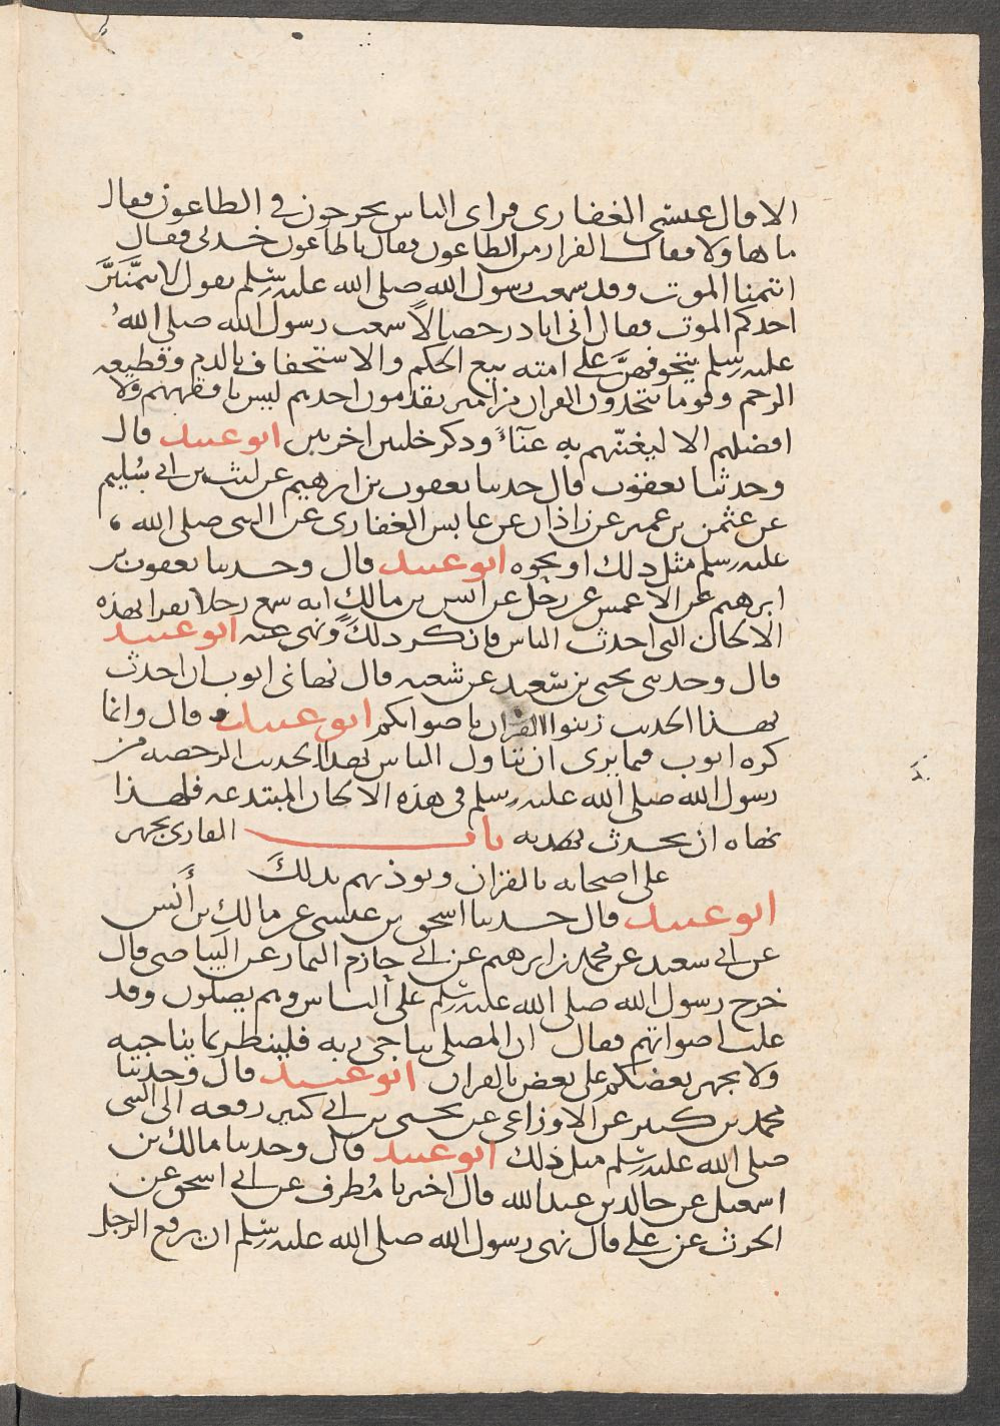 الا قال عبس الغفارى فراى الناس يخرجون فى الطاعون فقال
ما هاولا فقال الفرار من الطاعون فقال ياطاعون خدنى فقال
اتتمنا الموت وقد سمعت رسول الله صلى الله عليه وسلم يقول لا يتمنين
احدكم الموت فقال انى ابادر خصالا سمعت رسول الله صلى الله
عليه وسلم يتخوفهن على امته بيع الحكم والاستخفاف بالدم وقطيعه
الرحم وقوما يتخذون القران مزامير يقدمون احدهم ليس بافقههم ولا
افضلهم الا ليغنيهم به غناء وذكر خلتين اخرتين ابو عبيد قال
وحدثنا يعقوب قال حدثنا يعقوب بن ابرهيم عن ليث بن ابى سليم
عن عثمن بن عمير عن زاذان عن عابس الغفارى عن النبى صلى الله
عليه وسلم مثل ذلك او نحوه ابو عبيد قال وحدثنا يعقوب بن
ابرهيم عن الاعمش عن رجل عن انس بن مالك انه سمع رجلا يقرا بهذه
الالحان التى احدث الناس فانكر ذلك ونهى عنه ابو عبيد
قال وحدثنى يحيى بن سعيد عن شعبه قال نهانى ايوب ان احدث
بهذا الحديث زينوا القران باصواتكم ابو عبيد قال وانما
كره ايوب فيما نرى ان يتاول الناس بهذا الحديث الرخصه من
رسول الله صلى الله عليه وسلم فى هذه الالحان المبتدعه فلهذا
نهاه ان يحدث به باب القارئ يجهر
على اصحابه بالقران ويوذيهم بذلك
ابو عبيد قال حدثنا اسحق بن عيسى عن مالك بن أنس
عن ابى سعيد عن محمد بن ابرهيم عن ابى حازم التمار عن البياضى قال
خرج رسول الله صلى الله عليه وسلم على الناس وهم يصلون وقد
علت اصواتهم فقال ان المصلى يناجى ربه فلينظر بما يناجيه
ولا يجهر بعضكم على بعض بالقران ابو عبيد قال وحدثنا
محمد بن كثير عن الاوزاعى عن يحيى بن ابى كثير رفعه الى النبى
صلى الله عليه وسلم مثل ذلك ابو عبيد قال وحدثنا مالك بن
اسمعيل عن خالد بن عبد الله قال اخبرنا مطرف عن ابى اسحق عن
الحرث عن على قال نهى رسول الله صلى الله عليه وسلم ان يرفع الرجل